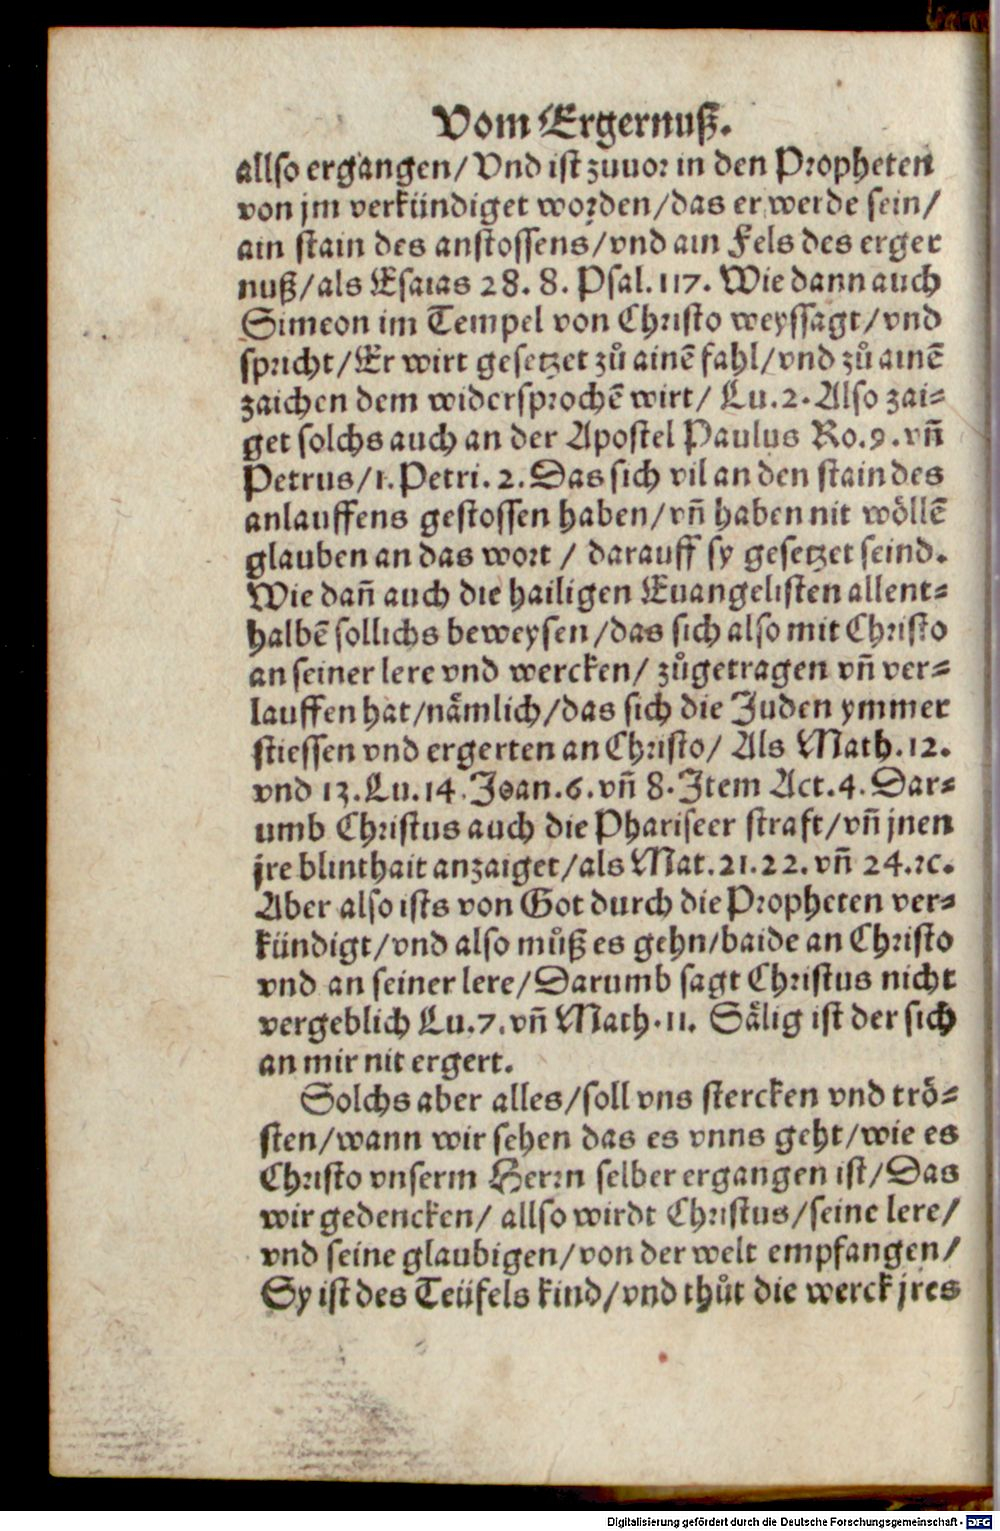 Vom Ergernuß.
allso ergangen/Vnd ist zuuor in den Propheten
von jm verkündiget worden/das er werde sein/
ain stain des anstossens/vnd ain Fels des erger
nuß/als Esaias 28. 8. Psal. 117. Wie dann auch
Simeon im Tempel von Christo weyssagt/vnd
spricht/Er wirt gesetzet zů ainē fahl/vnd zů ainē
zaichen dem widersprochē wirt/ Lu.2. Also zai⸗
get solchs auch an der Apostel Paulus Ro.9.vn̄
Petrus/1.Petri.2.Das sich vil an den stain des
anlauffens gestossen haben/vn̄ haben nit wöllē
glauben an das wort / darauff sy gesetzet seind.
Wie dan̄ auch die hailigen Euangelisten allent⸗
halbē sollichs beweysen/das sich also mit Christo
an seiner lere vnd wercken/ zůgetragen vn̄ ver⸗
lauffen hat/nämlich/das sich die Juden ymmer
stiessen vnd ergerten an Christo/ Als Math.12.
vnd 13.Lu.14.Joan.6.vn̄ 8.Jtem Act.4.Dar⸗
umb Christus auch die Phariseer straft/vn̄ jnen
jre blinthait anzaiget/als Mat.21.22.vn̄ 24.ꝛc.
Aber also ists von Got durch die Propheten ver⸗
kündigt/vnd also můß es gehn/baide an Christo
vnd an seiner lere/Darumb sagt Christus nicht
vergeblich Lu.7.vn̄ Math.11. Sälig ist der sich
an mir nit ergert.
Solchs aber alles/soll vns stercken vnd trö⸗
sten/wann wir sehen das es vnns geht/wie es
Christo vnserm Herrn selber ergangen ist/Das
wir gedencken/ allso wirdt Christus/seine lere/
vnd seine glaubigen/von der welt empfangen/
Sy ist des Teüfels kind/vnd thůt die werck jres
Digitalisierung gefördert durch die Deutsche Forschungsgemeinschaft - DFG